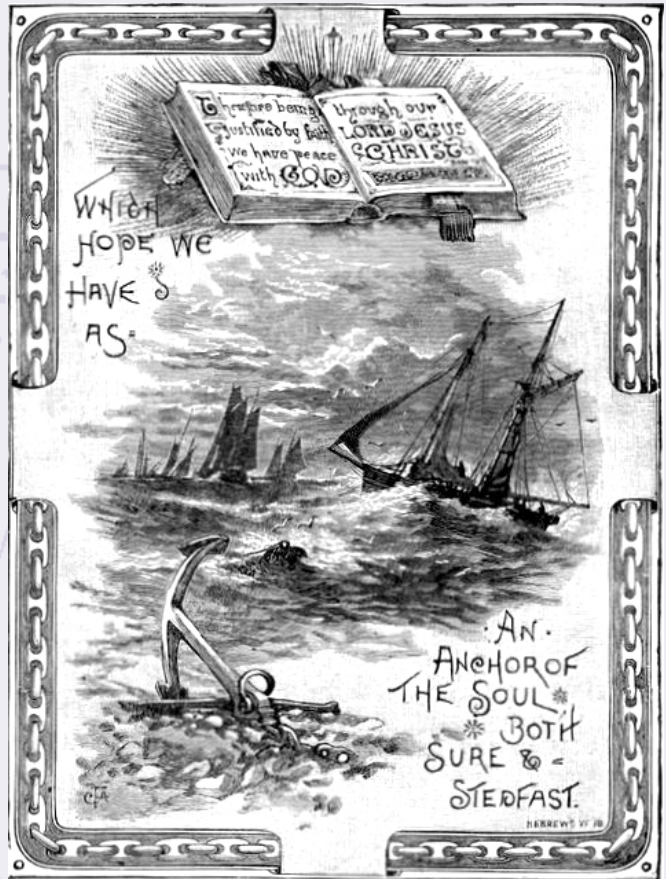 Therefore being
Justified by faith
we have peace
with GOD
through our
LORD JESUS
CHRIST
WHICH
HOPE WE
HAVE
AS=
:AN·
ANCHOR OF
THE SOUL
BOTH
SURE & =
STEDFAST.
HEBREWS VI
CFA